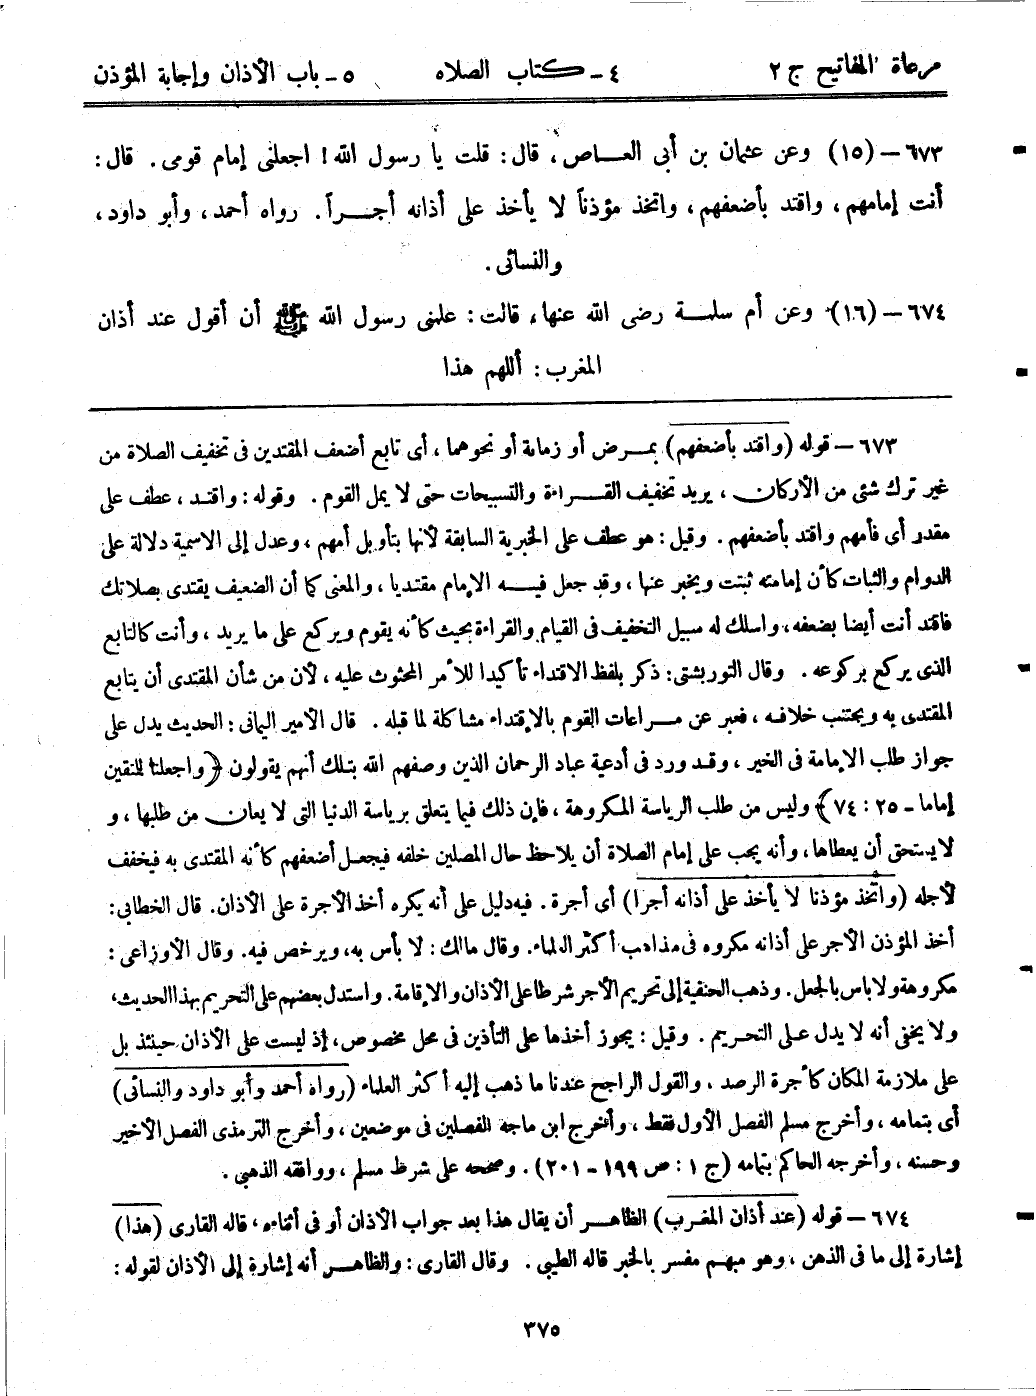 مرعاة المفاتيح ج ٢ ٤ - كتاب الصلاه ٥ - باب الأذان وإجابة المؤذن
٦٧٣ - (١٥) وعن عثمان بن أبى العاص، قال: قلت يا رسول الله! اجعلنى إمام قومى. قال:
أنت إمامهم، واقتد بأضعفهم، واتخذ مؤذناً لا يأخذ على أذانه أجراً. رواه أحمد، وأبو داود،
والنسائى.
٦٧٤ - (١٦) وعن أم سلمة رضى الله عنها، قالت: علمنى رسول الله ﷺ أن أقول عند أذان
المغرب: أللهم هذا
٦٧٣ - قوله (واقتد بأضعفهم) بمرض أو زمانة أو نحوهما، أى تابع أضعف المقتدين فى تخفيف الصلاة من
غير ترك شئى من الأركان، يريد تخفيف القراءة والتسبيحات حتى لا يمل القوم. وقوله: واقتد، عطف على
مقدر أى فأمهم واقتد بأضعفهم. وقيل: هو عطف على الخبرية السابقة لأنها بتأويل أمهم، وعدل إلى الاسمية دلالة على
الدوام والثبات كأن إمامته ثبتت ويخبر عنها، وقد جعل فيه الإمام مقتديا، والمعنى كما أن الضعيف يقتدى بصلاتك
فاقتد أنت أيضا بضعفه، واسلك له سبيل التخفيف فى القيام والقراءة بحيث كأنه يقوم ويركع على ما يريد، وأنت كالتابع
الذى يركع بركوعه. وقال التوربشتى: ذكر بلفظ الاقتداء تأكيدا للأمر المحثوث عليه، لأن من شأن المقتدى أن يتابع
المقتدى به ويجتنب خلافه، فعبر عن مراعات القوم بالإقتداء مشاكلة لما قبله. قال الأمير اليمانى: الحديث يدل على
جواز طلب الإمامة فى الخير، وقد ورد فى أدعية عباد الرحمان الذين وصفهم الله بتلك أنهم يقولون ﴿واجعلنا للمتقين
إماما - ٢٥: ٧٤﴾ وليس من طلب الرياسة المكروهة، فإن ذلك فيما يتعلق برياسة الدنيا التى لا يعان من طلبها، و
لا يستحق أن يعطاها، وأنه يجب على إمام الصلاة أن يلاحظ حال المصلين خلفه فيجعل أضعفهم كأنه المقتدى به فيخفف
لأجله (واتخذ مؤذنا لا يأخذ على أذانه أجرا) أى أجرة. فيه دليل على أنه يكره أخذ الأجرة على الأذان. قال الخطابى:
أخذ المؤذن الأجر على أذانه مكروه فى مذاهب أكثر العلماء. وقال مالك: لا بأس به، ويرخص فيه. وقال الأوزاعى:
مكروهة ولا باس بالجعل. وذهب الحنفية إلى تحريم الأجر شرطا على الأذان والإقامة. واستدل بعضهم على التحريم بهذا الحديث،
ولا يخفى أنه لا يدل على التحريم. وقيل: يجوز أخذها على التأذين فى محل مخصوص، إذ ليست على الأذان حينئذ بل
على ملازمة المكان كأجرة الرصد، والقول الراجح عندنا ما ذهب إليه أكثر العلماء (رواه أحمد وأبو داود والنسائى)
أى بتمامه، وأخرج مسلم الفصل الأول فقط، وأخرج ابن ماجه الفصلين فى موضعين، وأخرج الترمذى الفصل الأخير
وحسنه، وأخرجه الحاكم بتمامه (ج ١: ص ١٩٩ - ٢٠١). وصححه على شرط مسلم، ووافقه الذهبى.
٦٧٤ - قوله (عند أذان المغرب) الظاهر أن يقال هذا بعد جواب الأذان أو فى أثناءه، قاله القارى (هذا)
إشارة إلى ما فى الذهن، وهو مبهم مفسر بالخبر قاله الطيبى. وقال القارى: والظاهر أنه إشارة إلى الأذان لقوله:
٣٧٥